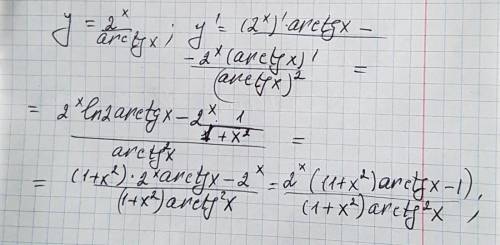 y = 2^x / arctgx ; y' = (2^x)' arctgx −
− 2^x (arctgx)' / (arctgx)^2 =
= 2^x ln2 arctgx − 2^x · 1 / 1 + x^2 / arctg^2x =
= (1+x^2) · 2^x arctgx − 2^x / (1+x^2) arctg^2x = 2^x ((1+x^2) arctgx − 1) / (1+x^2) arctg^2x ;